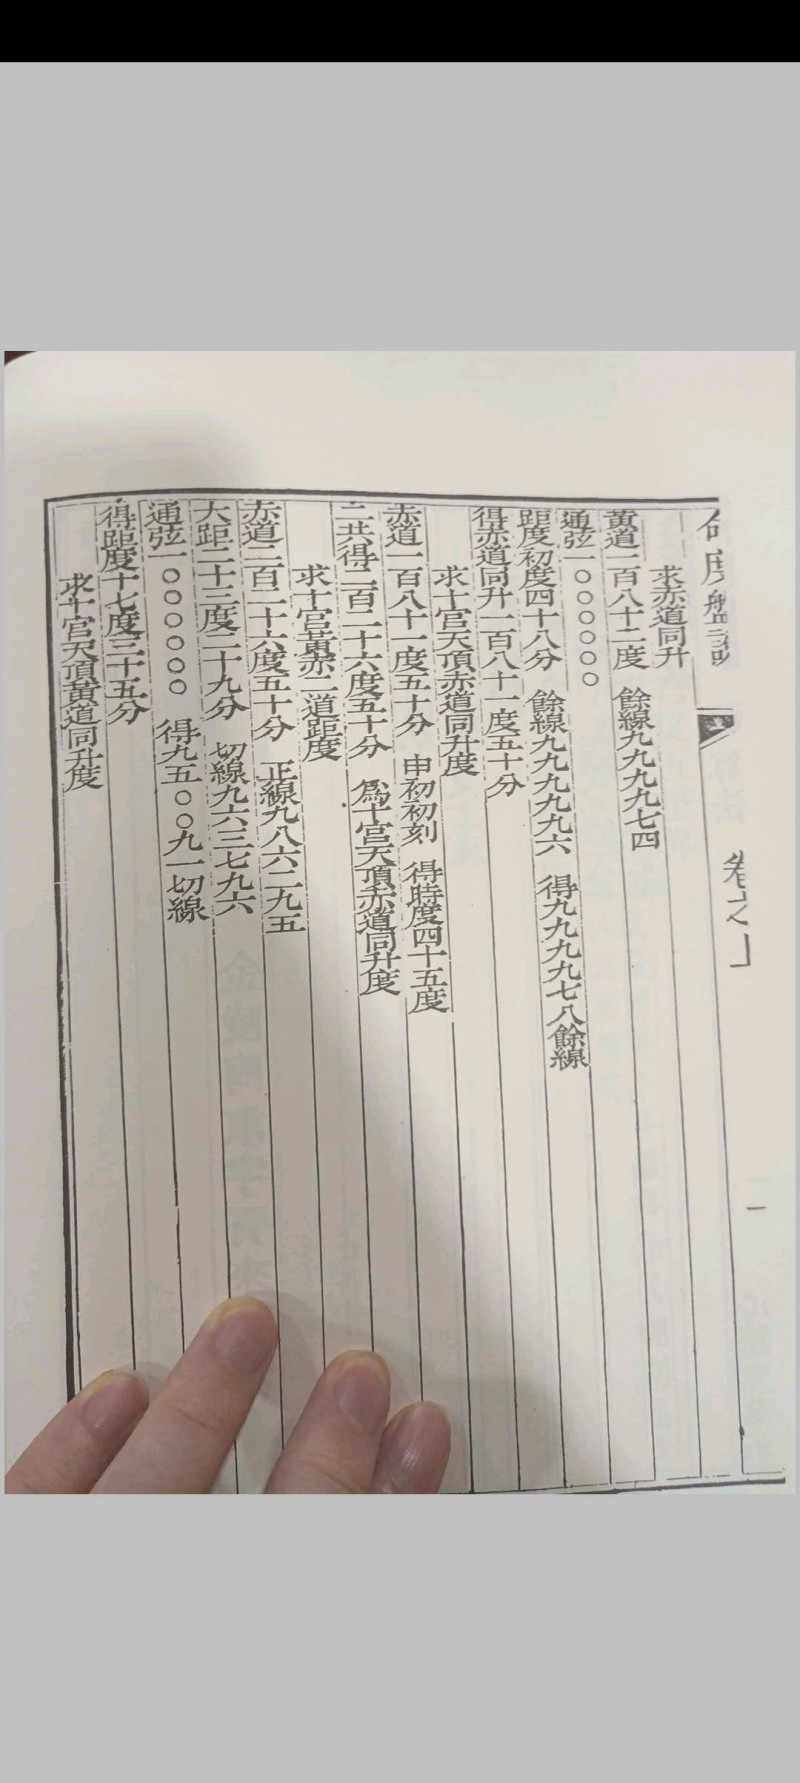 命度盤說 卷之上 一
求赤道同升
黃道一百八十二度 餘線九九九九七四
通弦一〇〇〇〇〇〇
距度初度四十八分 餘線九九九九九六 得九九九九七八餘線
得赤道同升一百八十一度五十分
求十宮天頂赤道同升度
赤道一百八十一度五十分 申初初刻 得時度四十五度
二共得二百二十六度五十分 為十宮天頂赤道同升度
求十宮黃赤二道距度
赤道二百二十六度五十分 正線九八六二九五
大距二十三度二十九分 切線九六三七九六
通弦一〇〇〇〇〇〇 得九五〇〇九一切線
得距度十七度三十五分
求十宮天頂黃道同升度